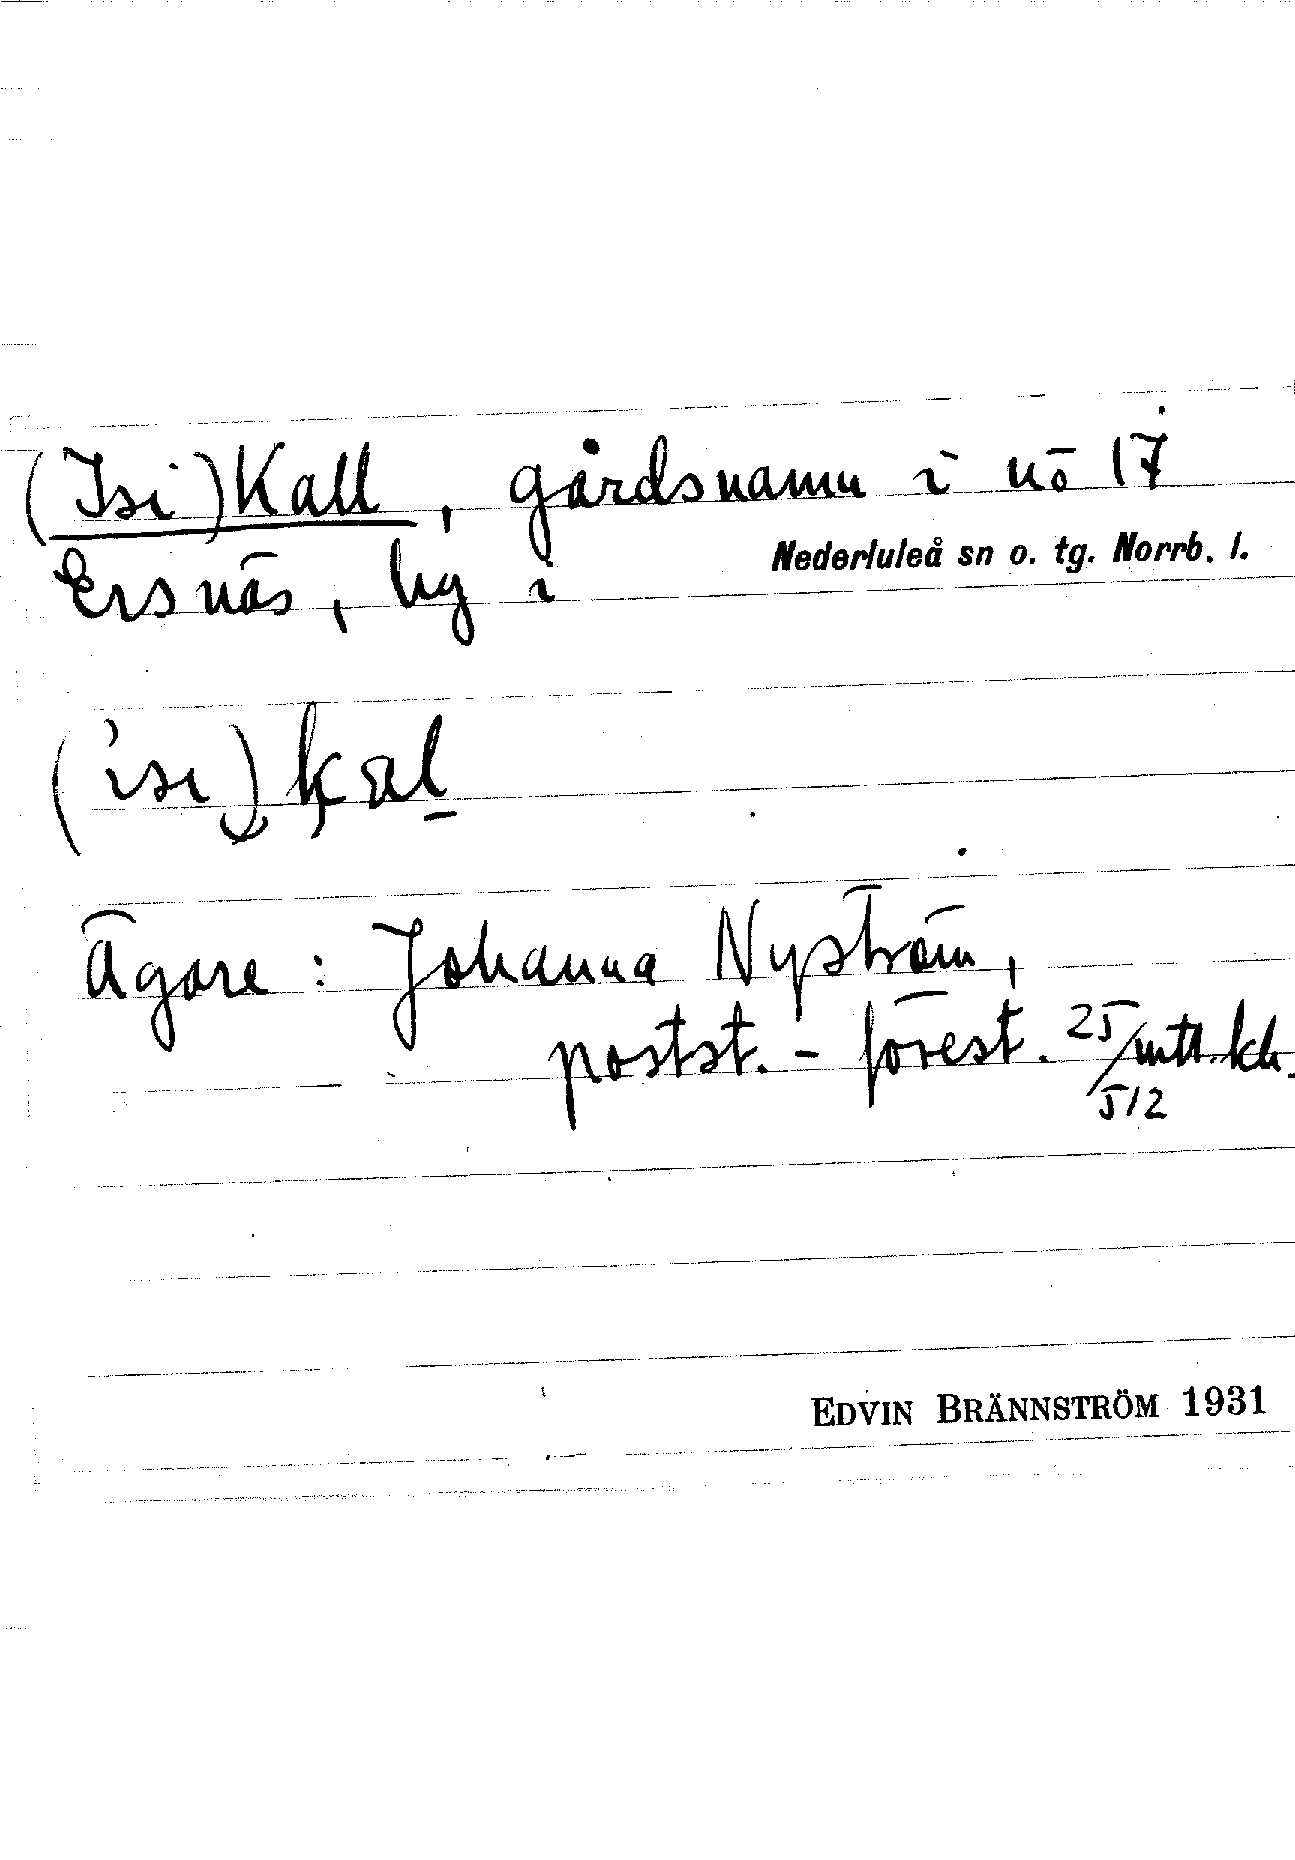 (Isi)Kall, gårdsnamn i nö 17
Ersnäs, by i Nederluleå sn o. tg. Norrb. l.
(ìsi)‿kal
Ägare: Johanna Nyström,
postst.-förest. 25/512 mtl. kr.
EDVIN BRÄNNSTRÖM 1931